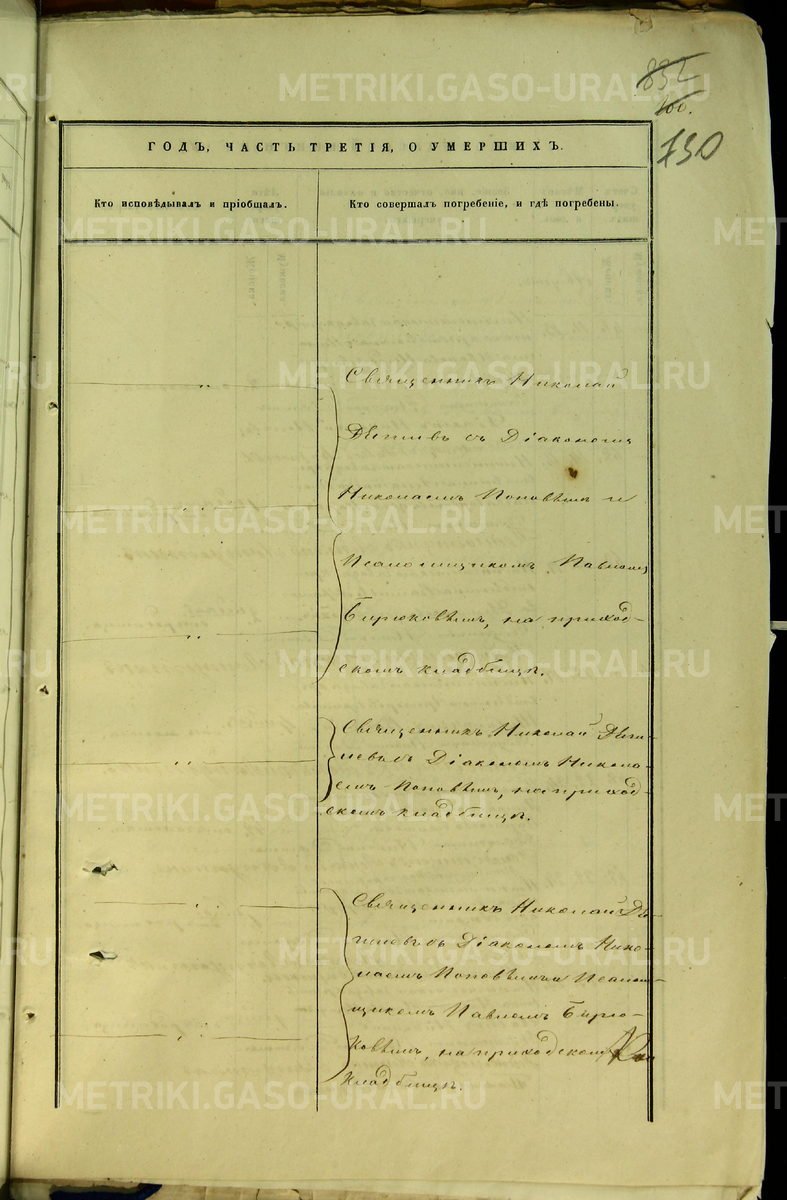 832
160.
730
ГОДЪ, ЧАСТЬ ТРЕТІЯ, О УМЕРШИХЪ.
Кто исповѣдывалъ и пріобщалъ.
Кто совершалъ погребеніе, и гдѣ погребены.
Священникъ Николай
съ Діакономъ
Николаемъ Поповымъ и
Псаломщикомъ Павломъ
Бирюковымъ, на приход-
скомъ кладбищѣ.
Священникъ Николай
Діакономъ Никола-
емъ Поповымъ, на приход-
скомъ кладбищѣ.
Священникъ Николай
Діакономъ Нико-
лаемъ Поповымъ и Псалом-
щикомъ Павломъ Бирю-
ковымъ, на приходскомъ
кладбищѣ.
METRIKI.GASO-URAL.RU